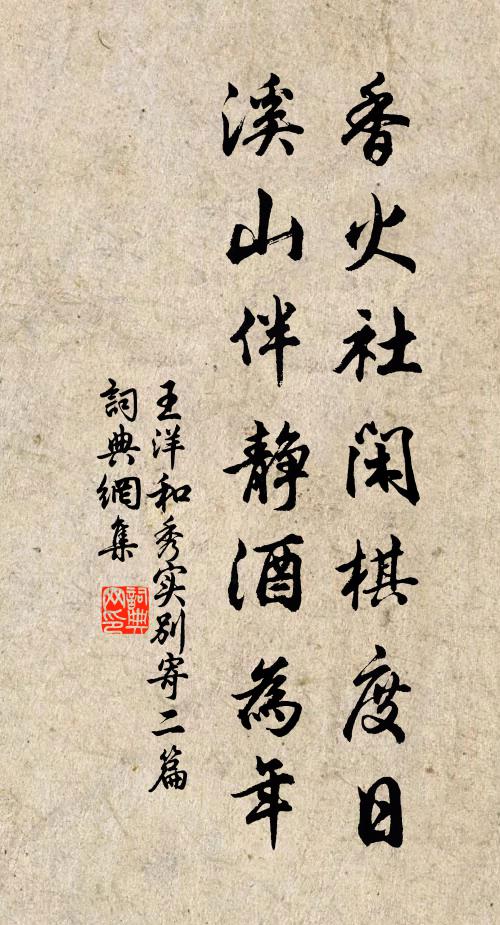 香火社闲棋度日
溪山伴静酒為年
王洋和秀实别寄二篇
詞典網集
詞典网印